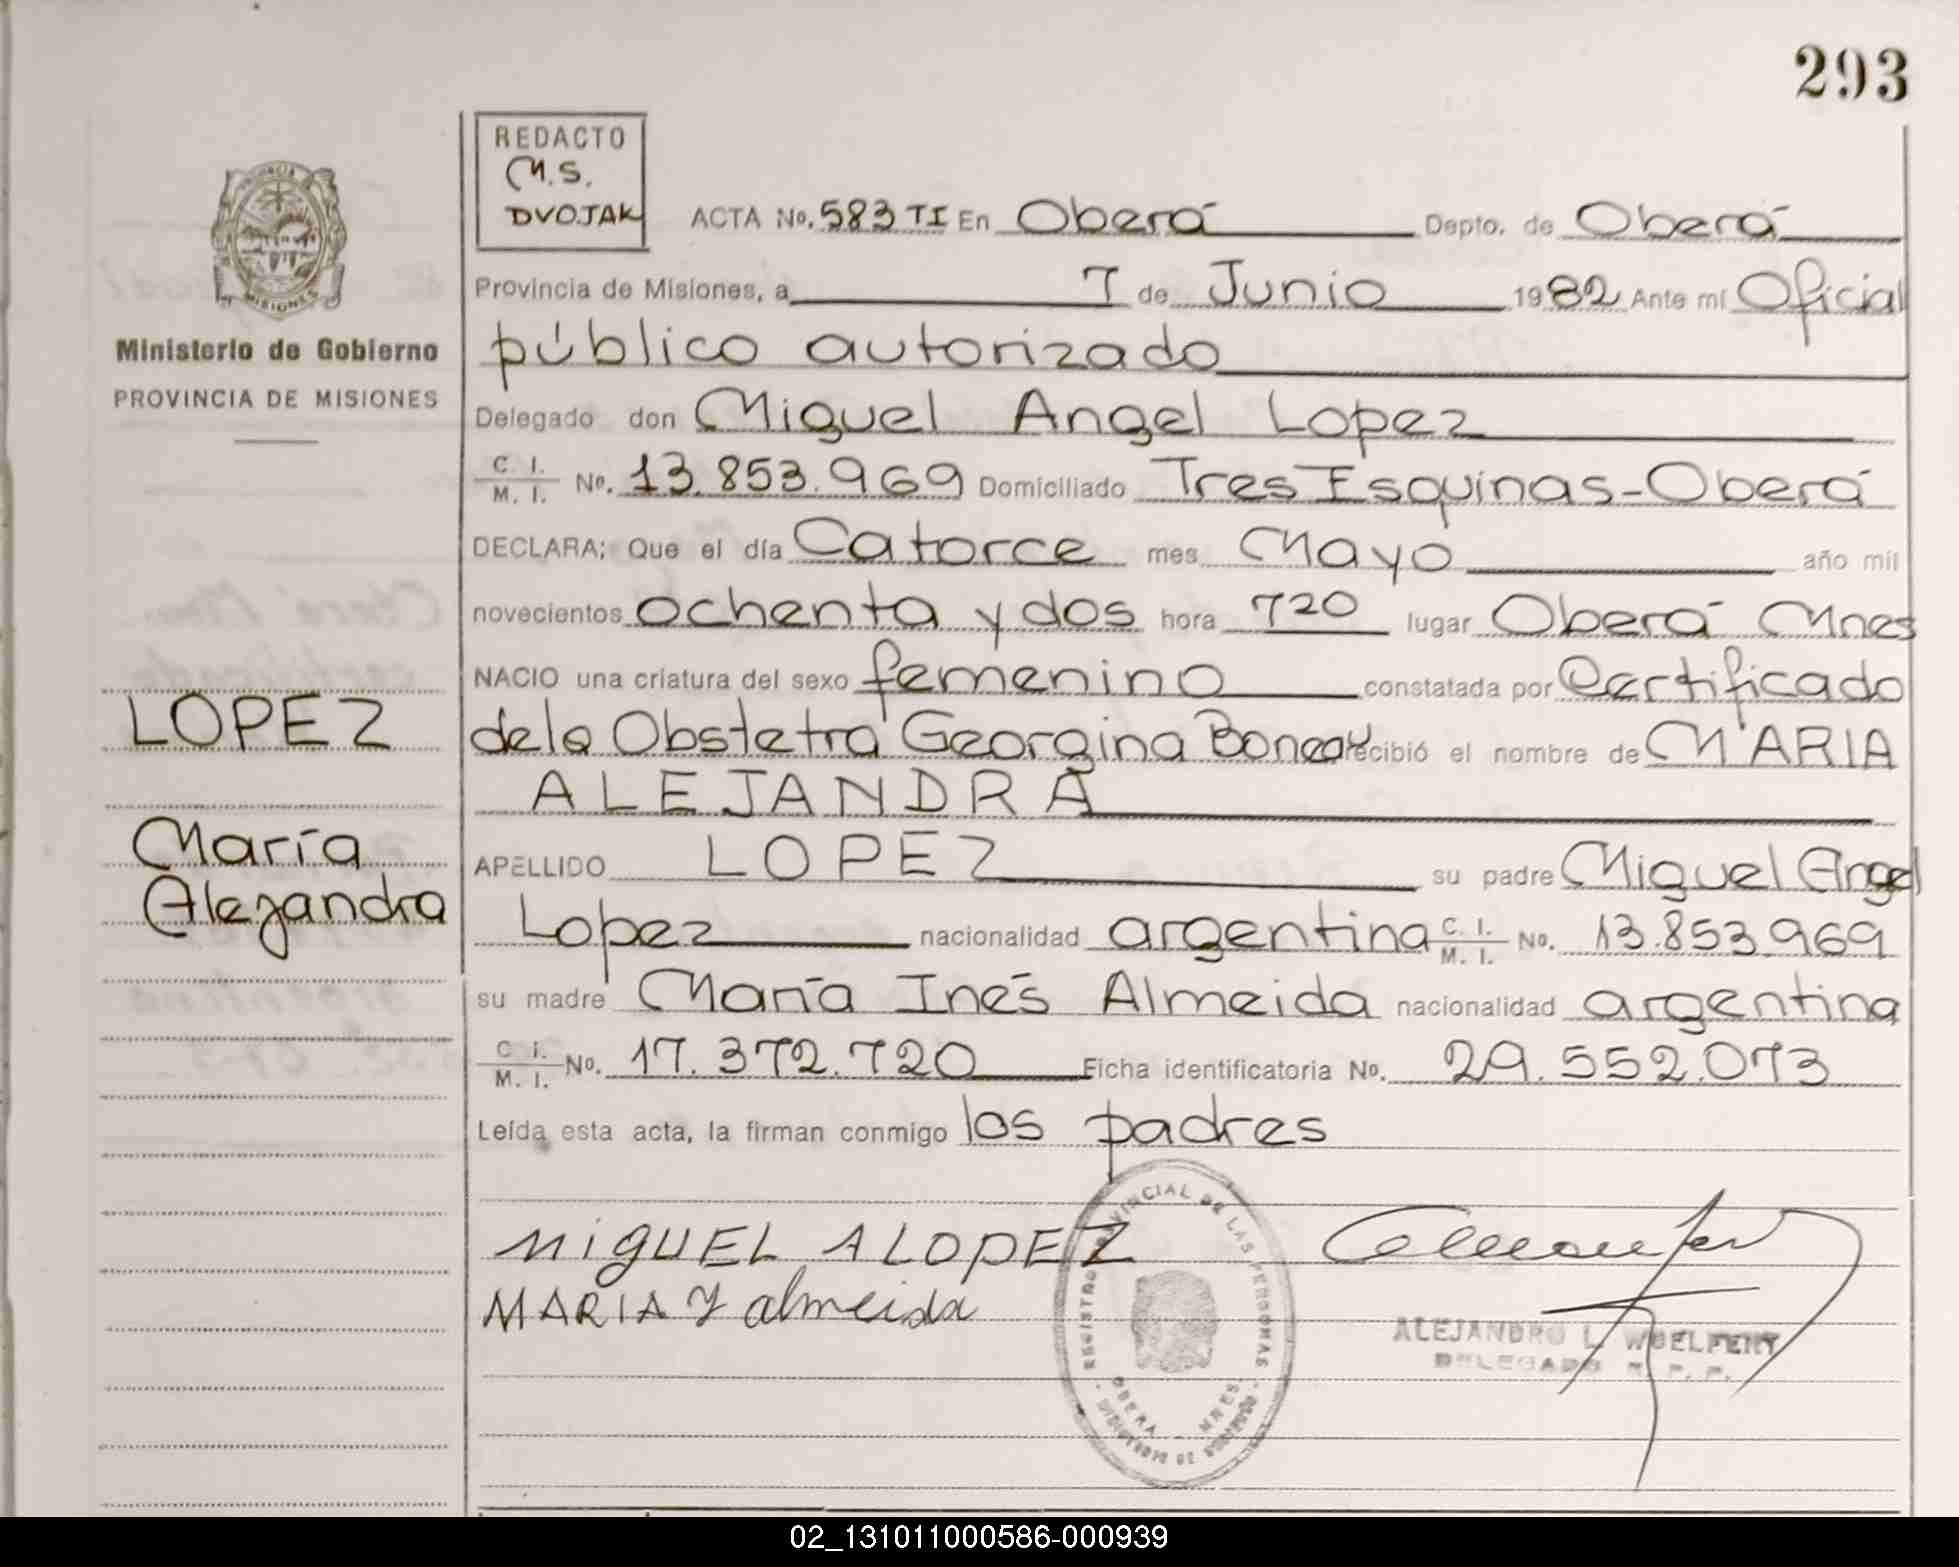 293
REDACTO
M.S.
DVOJAK
ACTA No. 583 TI En Oberá Depto. de Oberá
Provincia de Misiones, a 7 de Junio 1982 Ante mi Oficial
público autorizado
Delegado don Miguel Angel Lopez
C. I. M. I. No. 13.853.969 Domiciliado Tres Esquinas-Oberá
DECLARA: Que el día Catorce mes Mayo año mil
novecientos ochenta y dos hora 720 lugar Oberá Mnes
NACIO una criatura del sexo femenino constatada por Certificado
de la Obstetra Georgina recibió el nombre de MARIA
ALEJANDRA
APELLIDO LOPEZ su padre Miguel Angel
Lopez nacionalidad argentina C. I. M. I. No. 13.853.969
su madre María Inés Almeida nacionalidad argentina
C. I. M. I. No. 17.372.720 Ficha identificatoria No. 29.552.073
Leída esta acta, la firman conmigo los padres
MIGUEL A LOPEZ
MARIA Y almeida
REGISTRO PROVINCIAL DE LAS PERSONAS
OBERA - MNES.
ALEJANDRO L.
DELEGADO R. P. P.
MISIONES
Ministerio de Gobierno
PROVINCIA DE MISIONES
LOPEZ
María
Alejandra
02_131011000586-000939